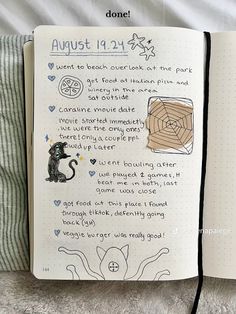 done!
August 19.24
went to beach overlook at the park
got food at Italian pizza and
winery in the area
sat outside
caraline movie date
movie started immediatly
we were the only ones
there! only a couple ppl
showed up later
went bowling after
we played 2 games, H
beat me in both, last
game was close
got food at this place I found
through tiktok, defenitly going
back (yu)
veggie burger was really good!
144